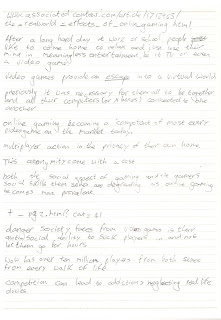 www.associatedcontent.com/article/1717525/
the_realworld_effects_of_online_gaming.html
After a long hard day at work or school people
like to come home to relax and just use their
mind in meaningless entertainment be it TV or even
a video game.
video games provide an escape into a virtual world
previously it was necessary for them all to be together
and all their computers for xboxes connected to
one another
online gaming becoming a component of most every
videogame on the market today.
multiplayer action in the privacy of their own home.
This anonymity come with a cost
both the social effect of gaming and the gamer's
social skills themselves are as online gaming
becomes more prevalent
danger society faces from video games is their
antisocial ability to suck players in and not
let them go for hours
WoW has over ten million players from both sexes
from every walk of life.
competition can lead to addictions neglecting real life
duties